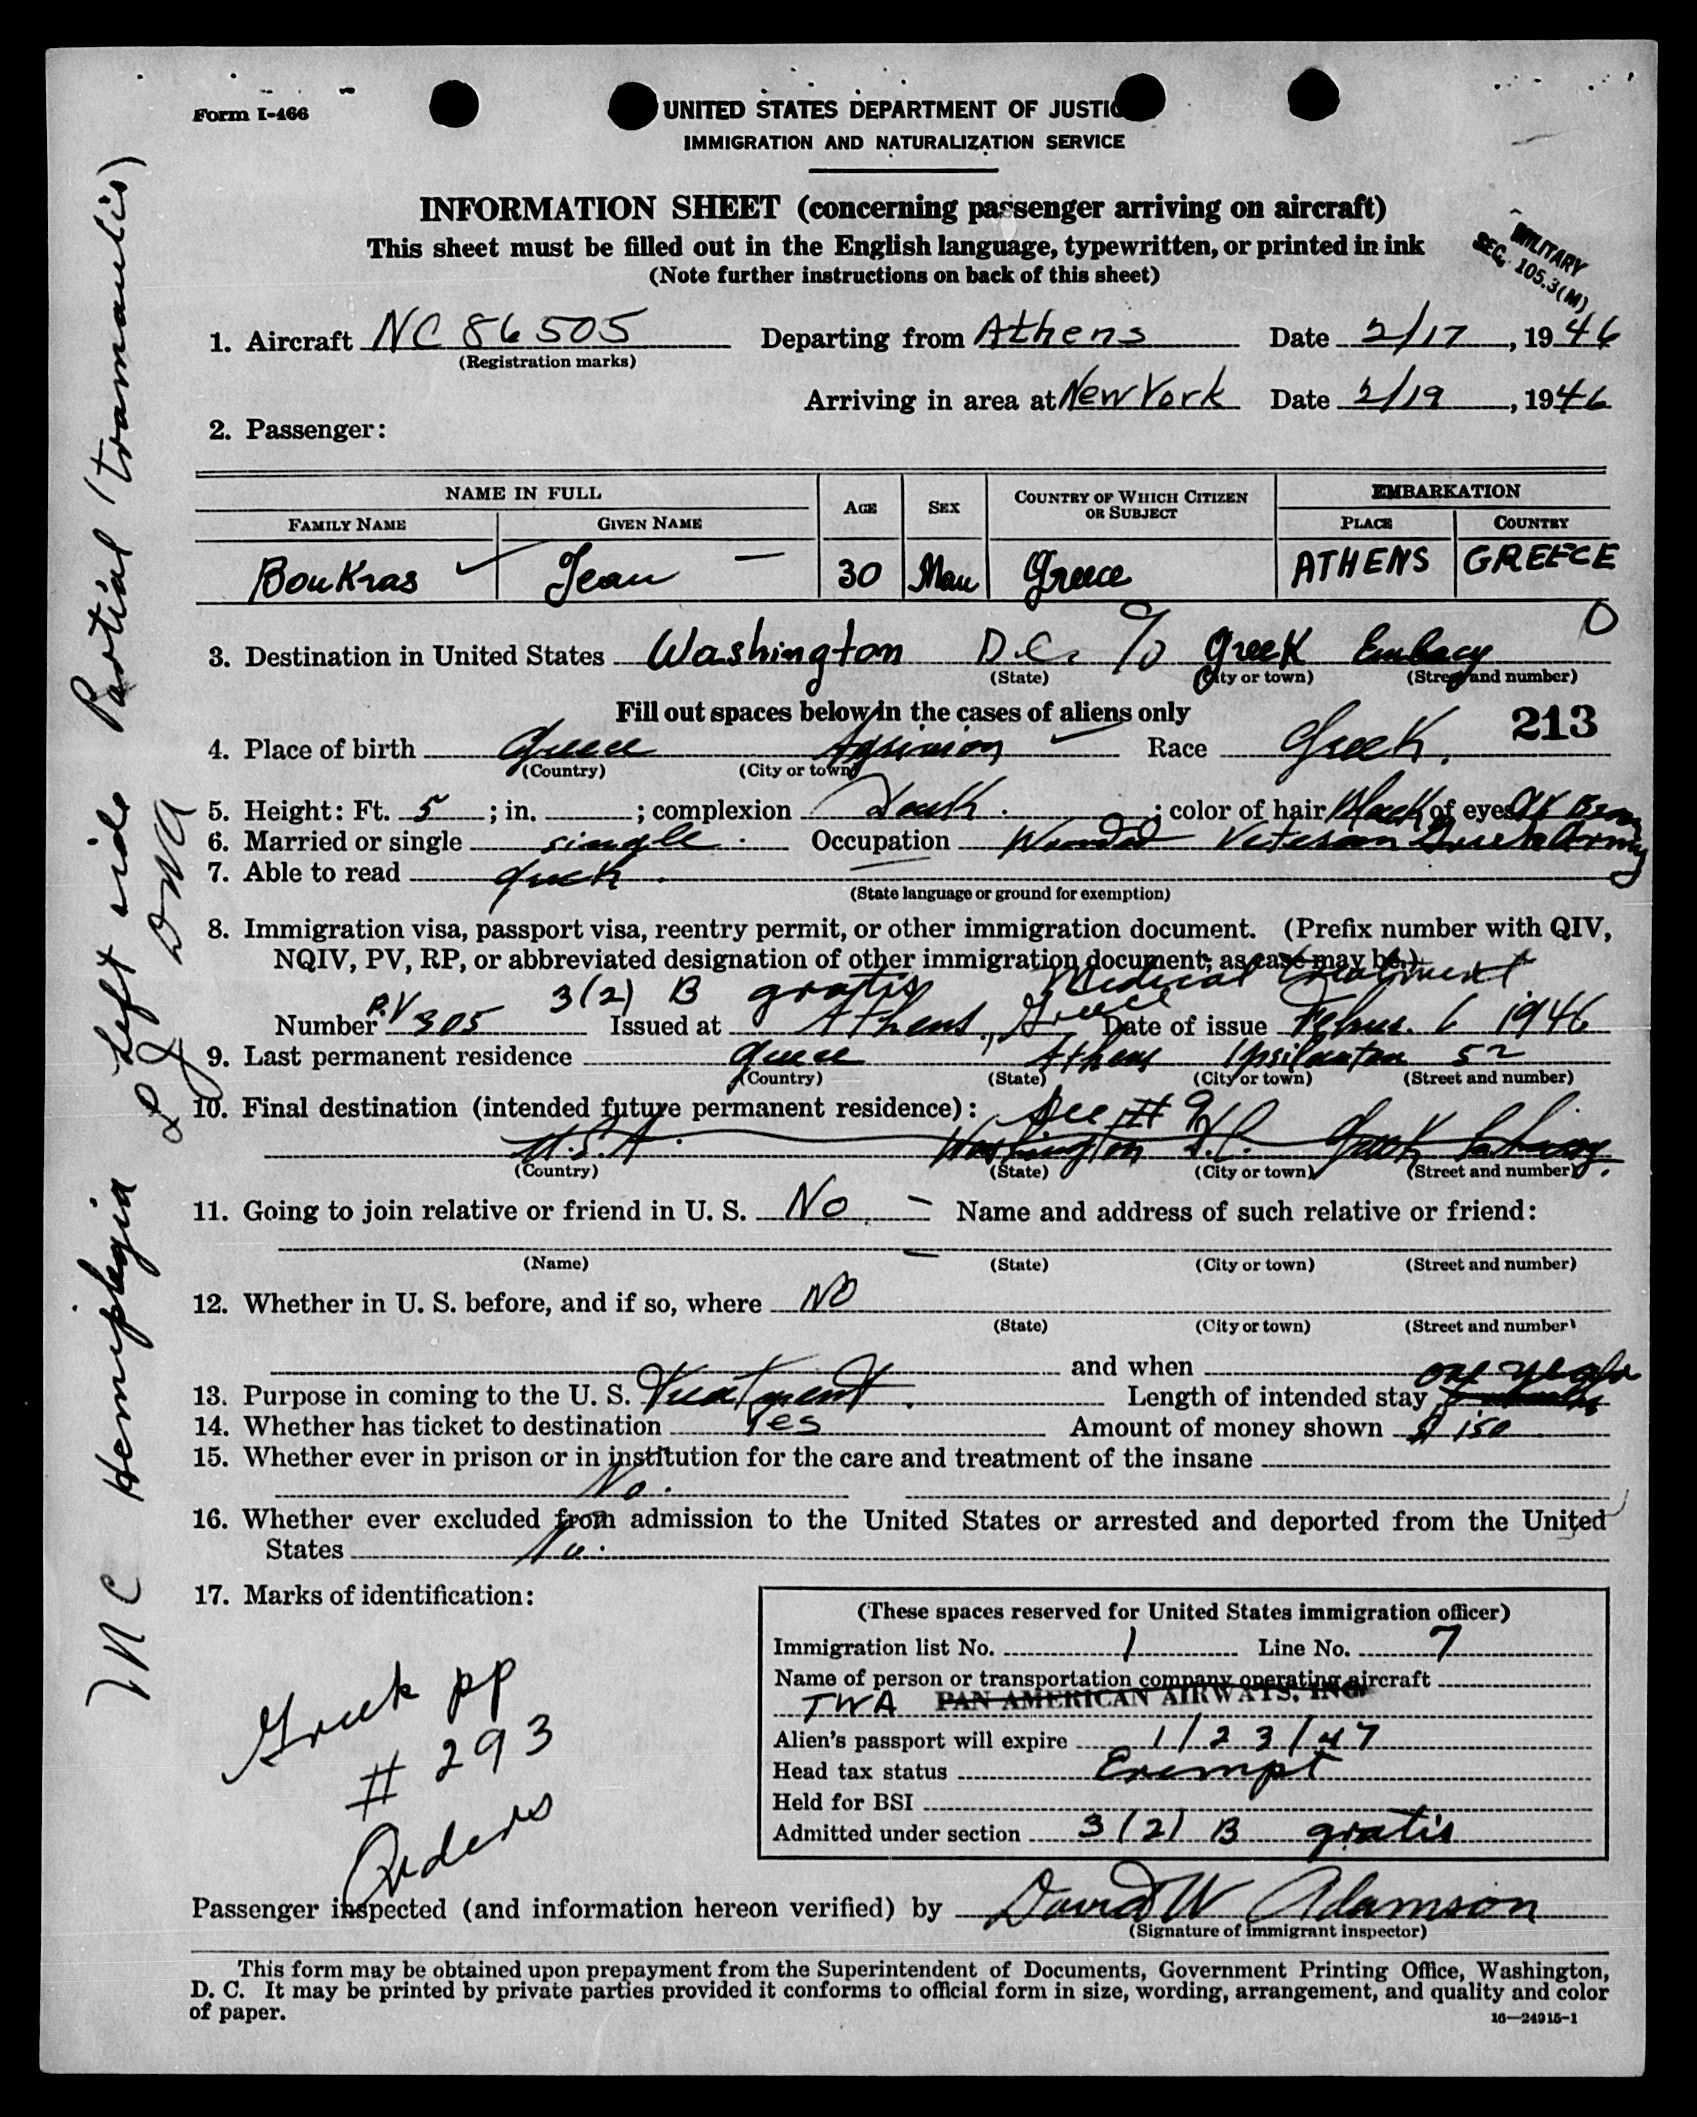 Form I-466
UNITED STATES DEPARTMENT OF JUSTIC
IMMIGRATION AND NATURALIZATION SERVICE
INFORMATION SHEET (concerning passenger arriving on aircraft)
This sheet must be filled out in the English language, typewritten, or printed in ink
(Note further instructions on back of this sheet)
MILITARY
SEC. 105.3(M)
1. Aircraft NC 86505 Departing from Athens Date 2/17, 1946
(Registration marks)
Arriving in area at New York Date 2/19, 1946
2. Passenger:
NAME IN FULL AGE SEX COUNTRY OF WHICH CITIZEN OR SUBJECT EMBARKATION
FAMILY NAME GIVEN NAME PLACE COUNTRY
Boukras Jean 30 Man Greece ATHENS GREECE
3. Destination in United States Washington D.C. c/o Greek Embacy
(State) (City or town) (Street and number)
Fill out spaces below in the cases of aliens only
213
4. Place of birth Greece Agrinion Race Greek.
(Country) (City or town)
5. Height: Ft. 5; in. ; complexion Dark. ; color of hair Black of eyes Brown
6. Married or single single. Occupation Wounded Veteran Greek Army
7. Able to read Greek.
(State language or ground for exemption)
8. Immigration visa, passport visa, reentry permit, or other immigration document. (Prefix number with QIV,
NQIV, PV, RP, or abbreviated designation of other immigration document, as case may be.)
3(2) B gratis Medical treatment
Number PV 305 Issued at Athens, Greece Date of issue Febru. 6 1946
9. Last permanent residence Greece Athens Ypsilanton 52
(Country) (State) (City or town) (Street and number)
10. Final destination (intended future permanent residence): See # 9
U.S.A. Washington D.C. Greek
(Country) (State) (City or town) (Street and number)
11. Going to join relative or friend in U. S. No Name and address of such relative or friend:
(Name) (State) (City or town) (Street and number)
12. Whether in U. S. before, and if so, where NO
(State) (City or town) (Street and number)
and when
13. Purpose in coming to the U. S. Treatment. Length of intended stay one year
14. Whether has ticket to destination Yes Amount of money shown $ 150
15. Whether ever in prison or in institution for the care and treatment of the insane
No.
16. Whether ever excluded from admission to the United States or arrested and deported from the United
States No.
17. Marks of identification:
Greek pp
# 293
Orders
(These spaces reserved for United States immigration officer)
Immigration list No. 1 Line No. 7
Name of person or transportation company operating aircraft
TWA PAN AMERICAN AIRWAYS, INC.
Alien's passport will expire 1/23/47
Head tax status Exempt
Held for BSI
Admitted under section 3(2) B gratis
Passenger inspected (and information hereon verified) by David W Adamson
(Signature of immigrant inspector)
This form may be obtained upon prepayment from the Superintendent of Documents, Government Printing Office, Washington,
D. C. It may be printed by private parties provided it conforms to official form in size, wording, arrangement, and quality and color
of paper.
16—24915-1
MC Hemiplegia Left side Partial (traumatic)